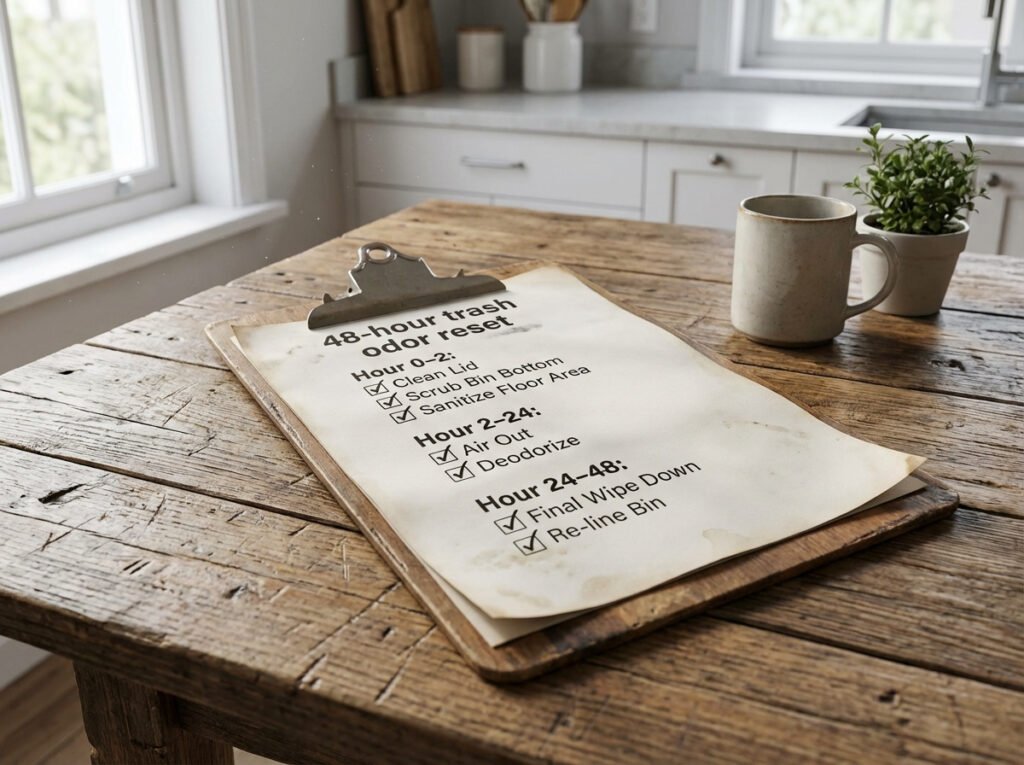 48-hour trash
odor reset
Hour 0–2:
Clean Lid
Scrub Bin Bottom
Sanitize Floor Area
Hour 2–24:
Air Out
Deodorize
Hour 24–48:
Final Wipe Down
Re-line Bin